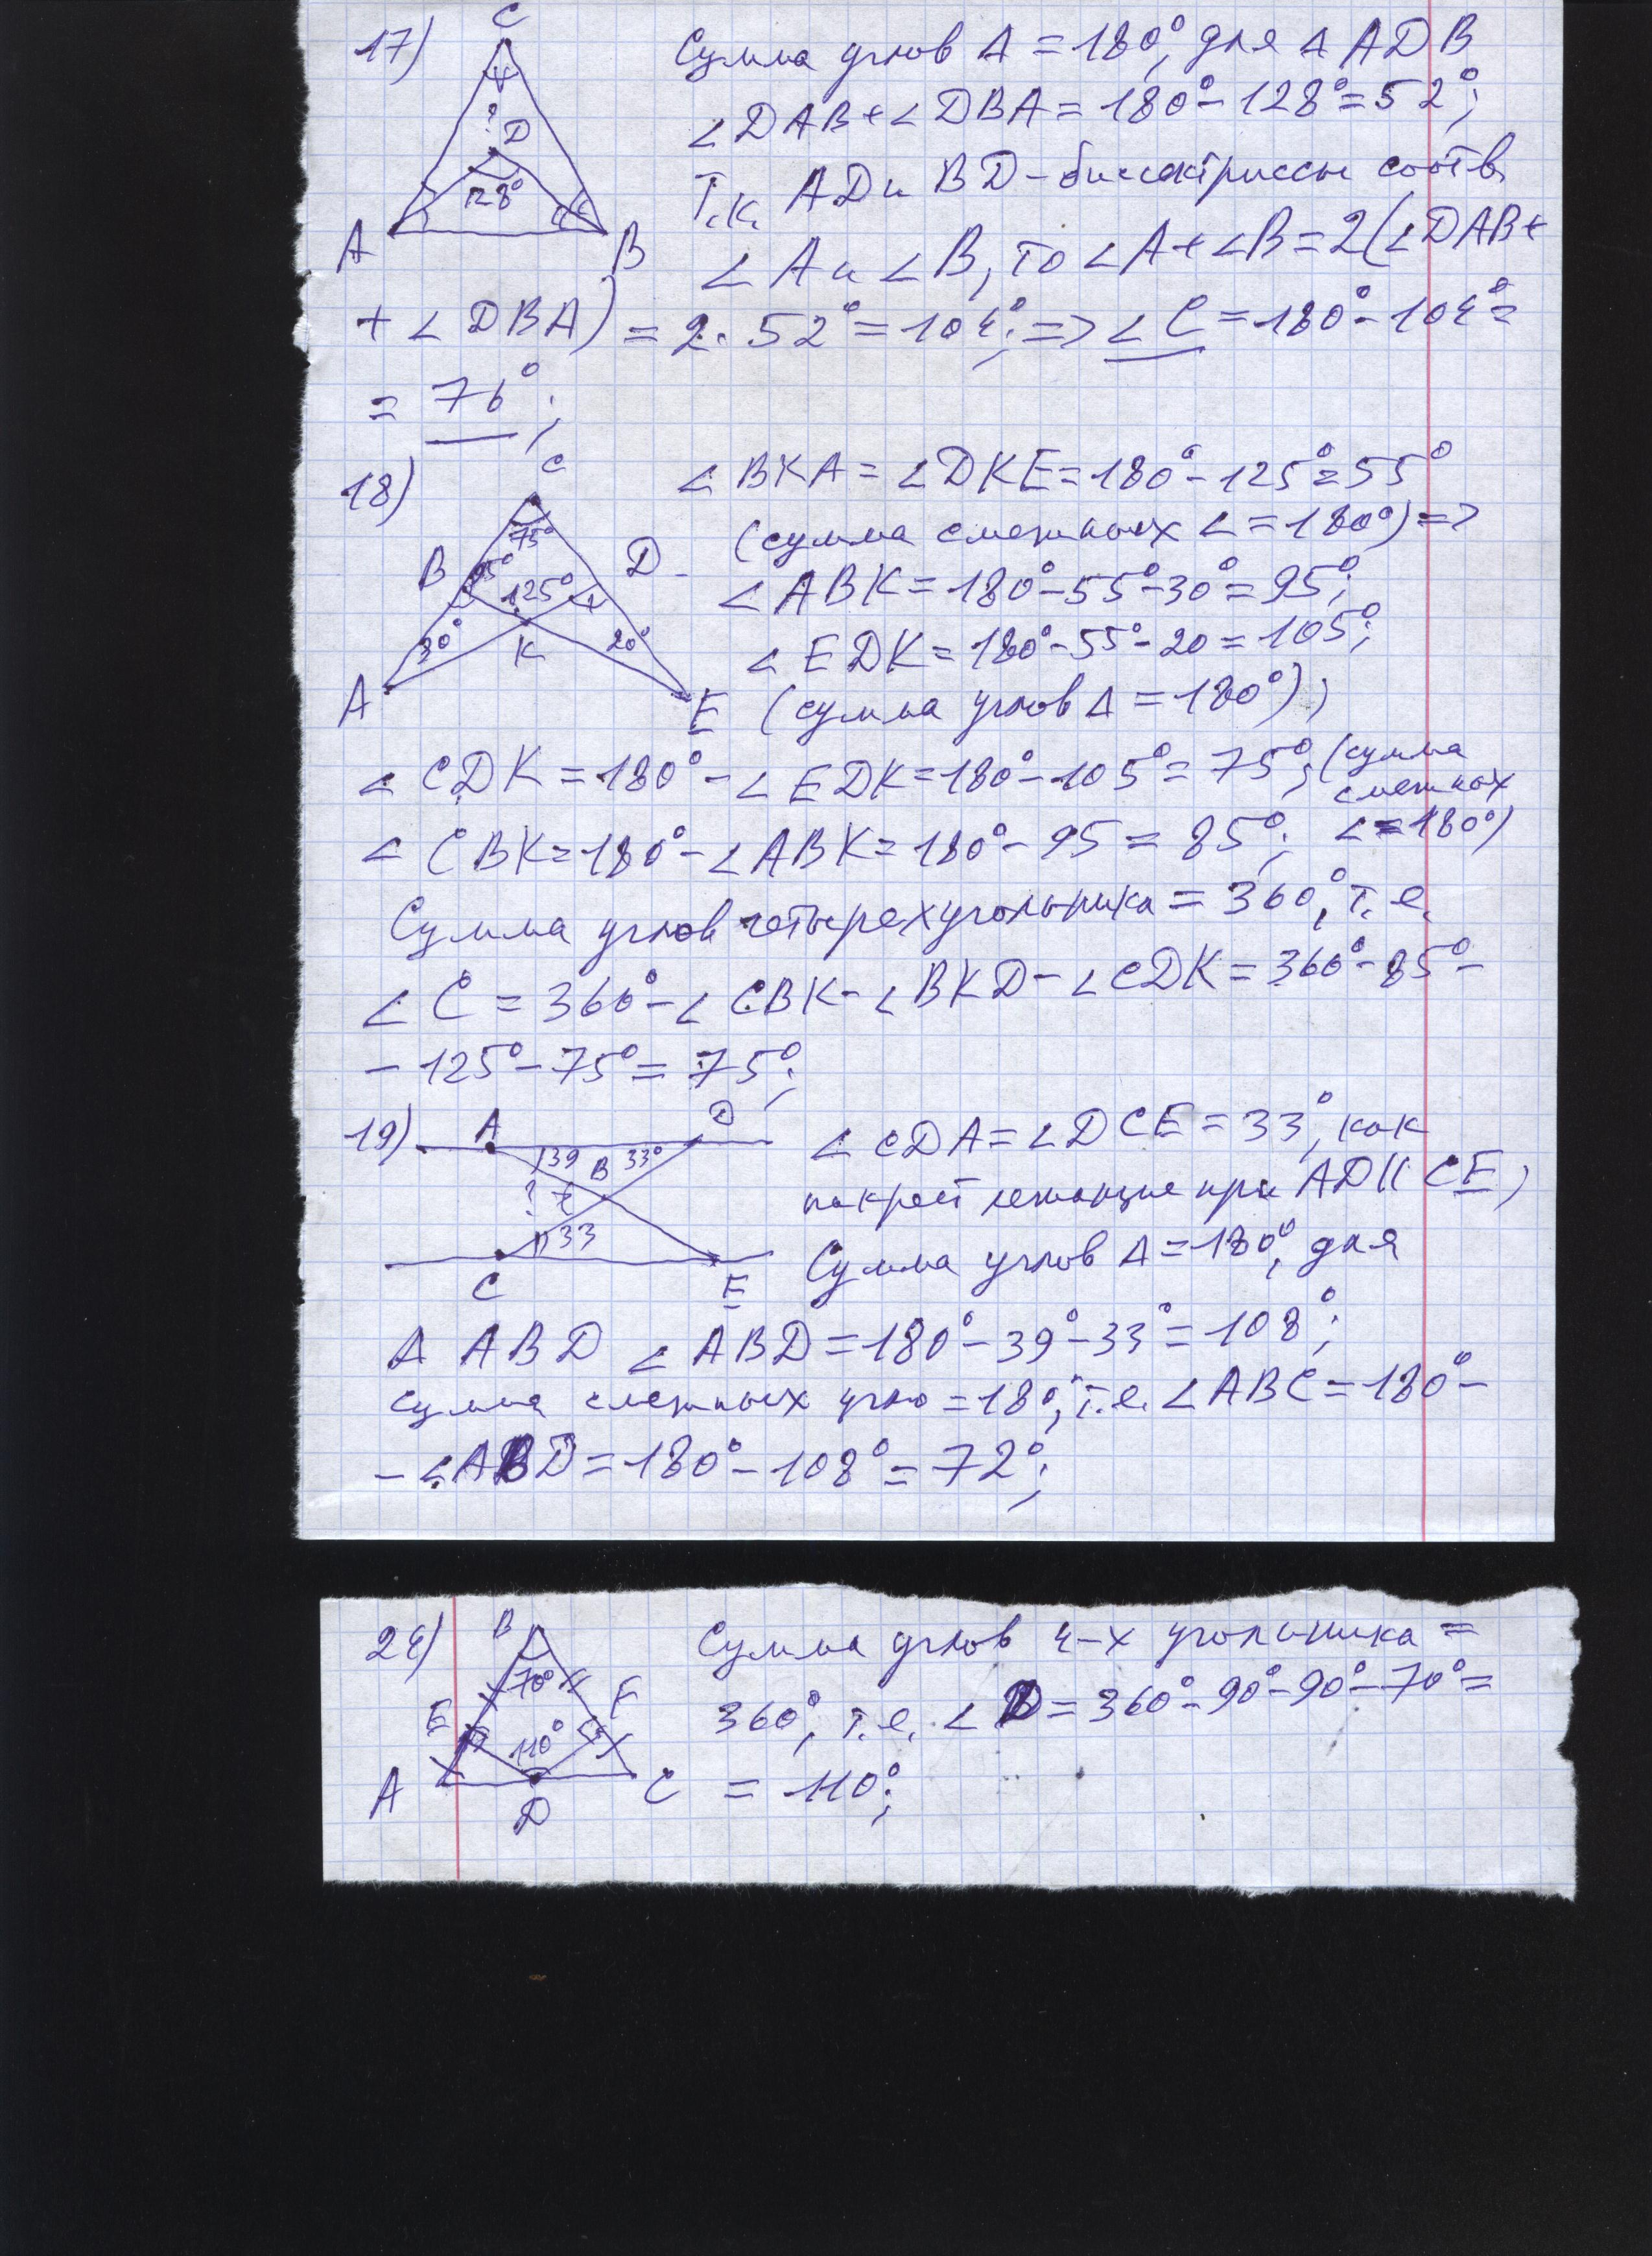 17)
C
D
?
128°
A
B
Сумма углов Δ = 180°, для Δ ADB
∠DAB + ∠DBA = 180° - 128° = 52°;
Т.к. AD и BD - биссектриссы соотв.
∠A и ∠B, то ∠A + ∠B = 2(∠DAB +
+ ∠DBA) = 2 · 52° = 104°; => ∠C = 180° - 104° =
= 76°;
18)
C
75°
B
95°
125°
D
30°
K
20°
A
E
∠BKA = ∠DKE = 180° - 125° = 55°
(сумма смежных ∠ = 180°) =>
∠ABK = 180° - 55° - 30° = 95°;
∠EDK = 180° - 55° - 20 = 105°;
(сумма углов Δ = 180°);
∠CDK = 180° - ∠EDK = 180° - 105° = 75°; (сумма
смежных
∠ = 180°)
∠CBK = 180° - ∠ABK = 180° - 95 = 85°;
Сумма углов четырехугольника = 360°, т.е.
∠C = 360° - ∠CBK - ∠BKD - ∠CDK = 360° - 85° -
- 125° - 75° = 75°;
19)
A
D
39
B
33°
?
33
C
E
∠CDA = ∠DCE = 33°, как
накрест лежащие при AD || CE;
Сумма углов Δ = 180°, для
Δ ABD ∠ABD = 180° - 39° - 33° = 108°;
сумма смежных угло = 180°, т.е. ∠ABC = 180° -
- ∠ABD = 180° - 108° = 72°;
24)
B
70°
E
F
110°
A
D
C
Сумма углов 4-х угольника =
360°, т.е. ∠D = 360° - 90° - 90° - 70° =
= 110°;